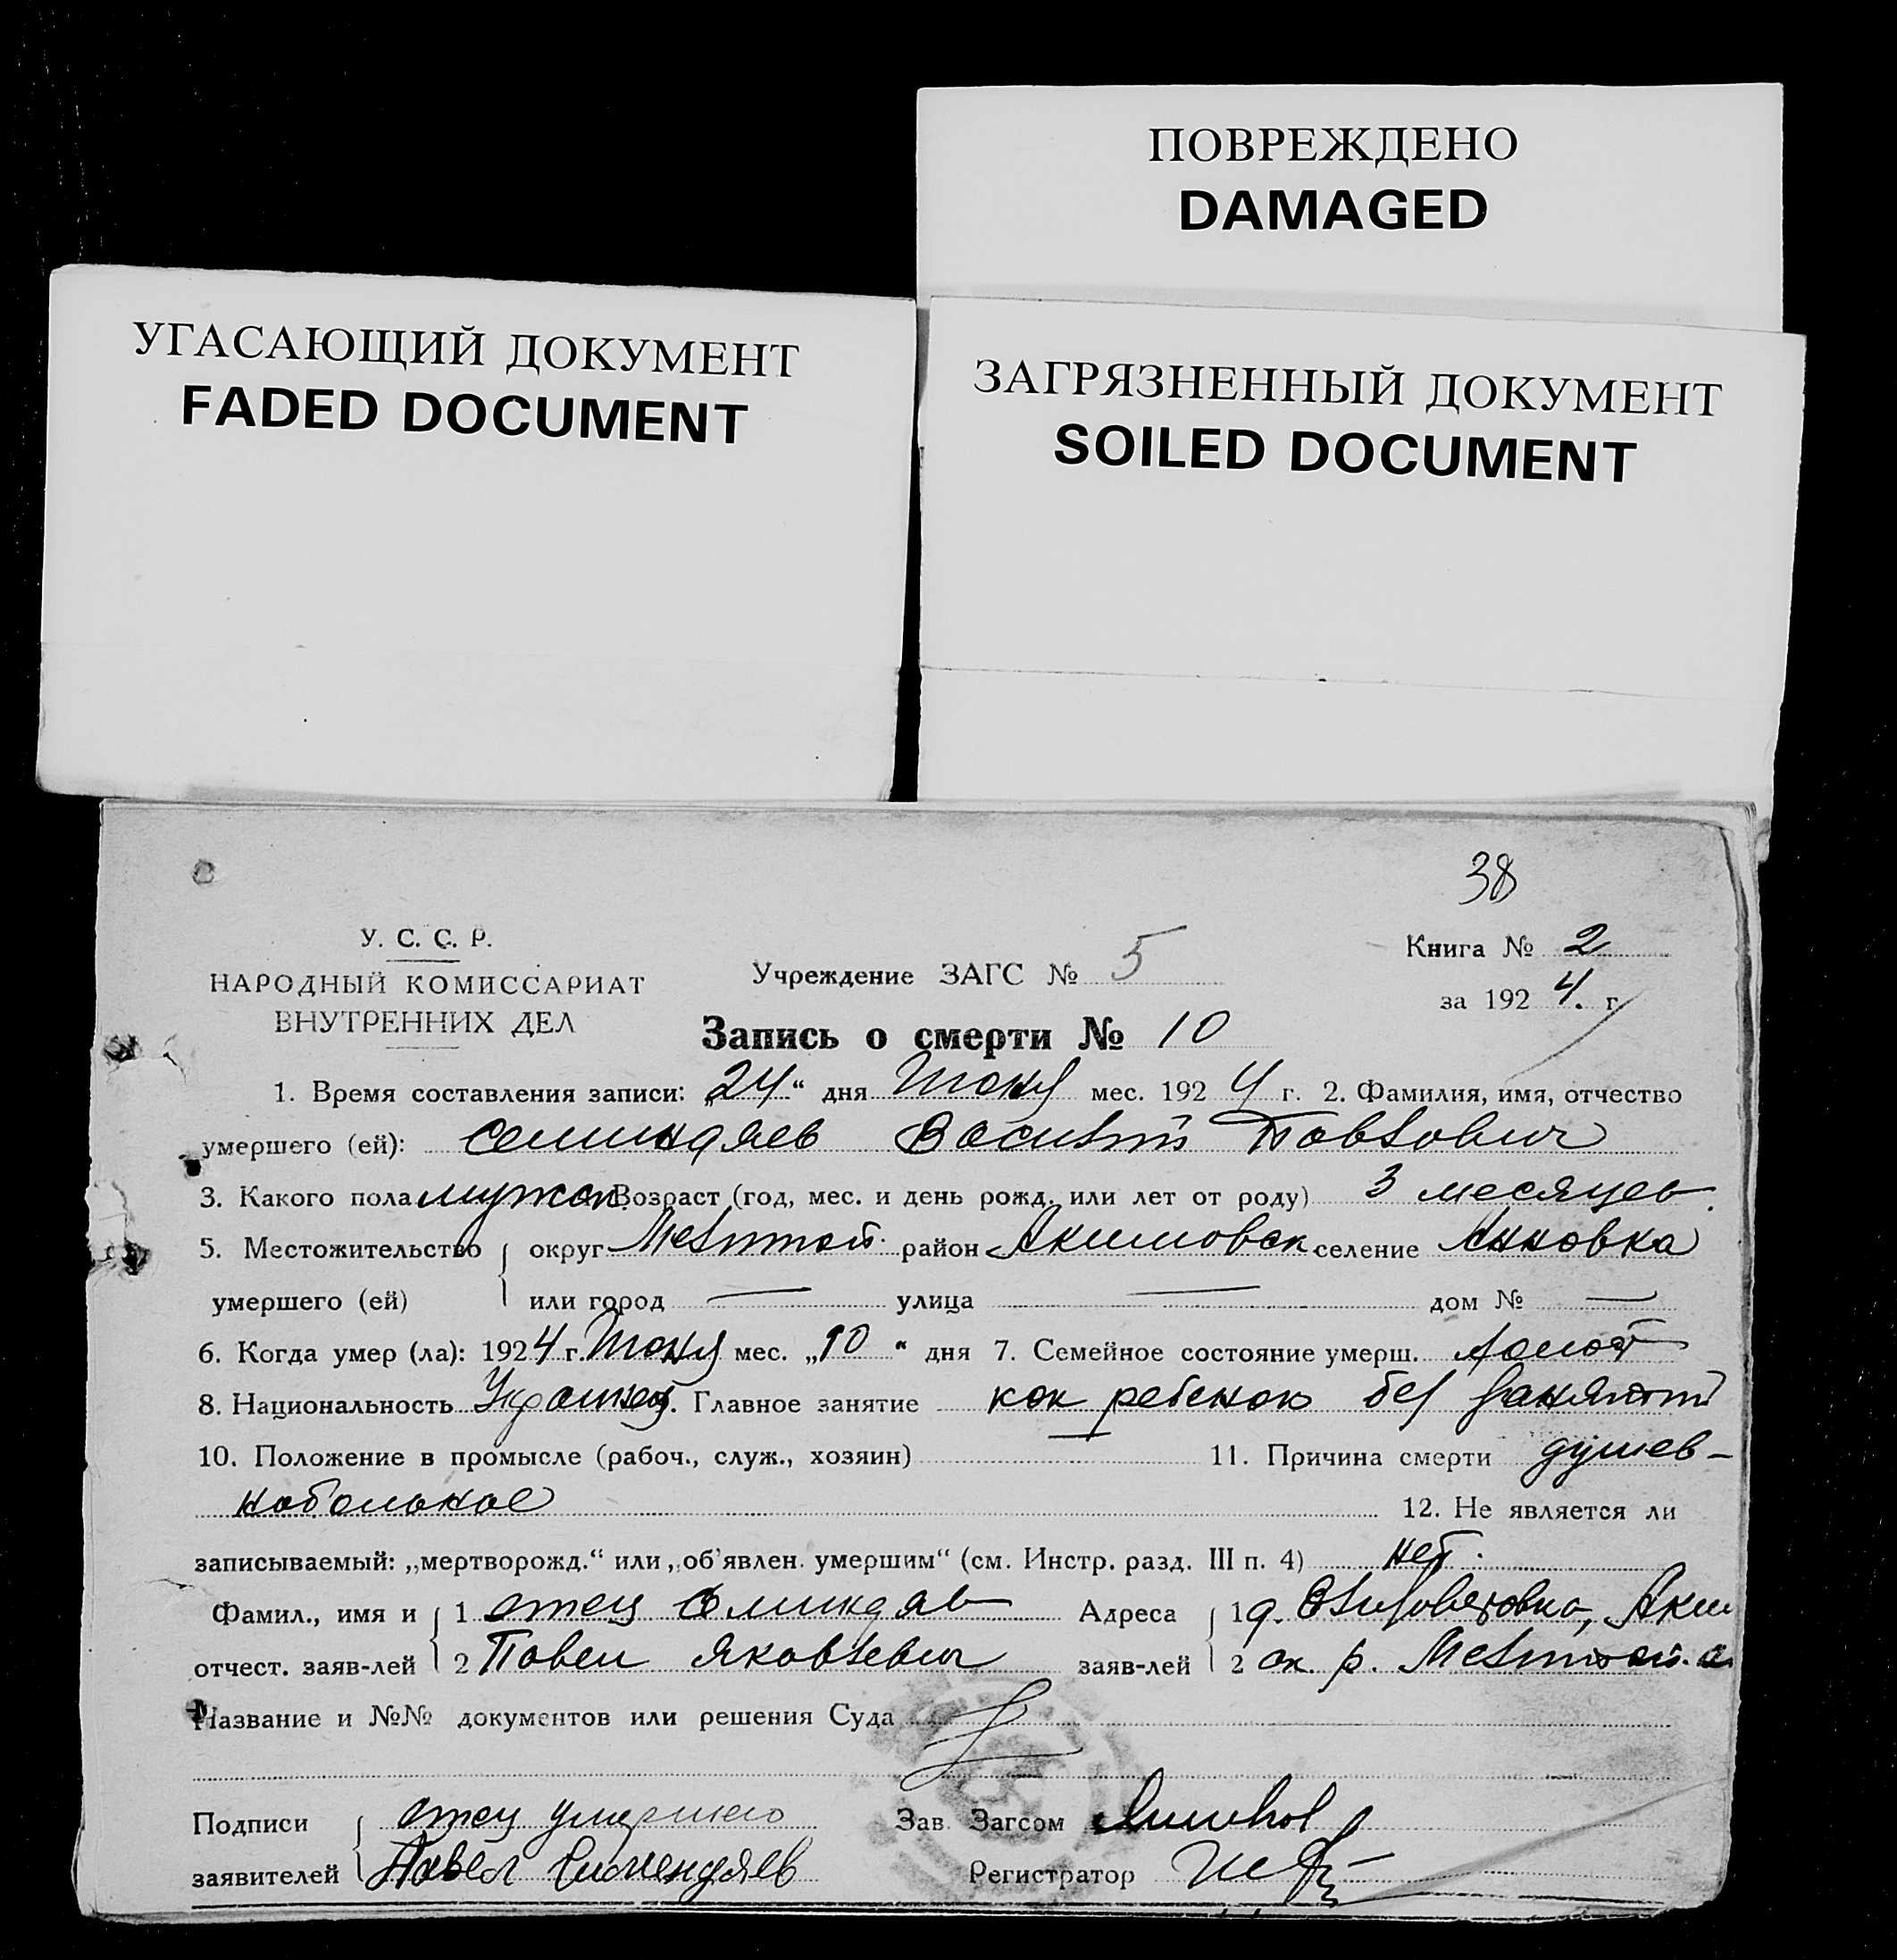 ПОВРЕЖДЕНО
DAMAGED
УГАСАЮЩИЙ ДОКУМЕНТ
FADED DOCUMENT
ЗАГРЯЗНЕННЫЙ ДОКУМЕНТ
SOILED DOCUMENT
38
У. С. С. Р.
НАРОДНЫЙ КОМИССАРИАТ
ВНУТРЕННИХ ДЕЛ
Учреждение ЗАГС № 5
Книга № 2
за 1924. г.
Запись о смерти № 10
1. Время составления записи: „24“ дня Июня мес. 1924 г. 2. Фамилия, имя, отчество
умершего (ей): Василий Павлович
3. Какого пола мужск. Возраст (год, мес. и день рожд. или лет от роду) 3 месяцев.
5. Местожительство округ Мелитоп. район Акимовск селение Анновка
умершего (ей) или город — улица — дом № —
6. Когда умер (ла): 1924 г. Июня мес. „10“ дня 7. Семейное состояние умерш. холост
8. Национальность Украинец. Главное занятие как ребенок без занятий
10. Положение в промысле (рабоч., служ., хозяин) — 11. Причина смерти душев-
нобольное
12. Не является ли
записываемый: „мертворожд.“ или „об'явлен. умершим“ (см. Инстр. разд. III п. 4) нет.
Фамил., имя и 1 отец Адреса 1 д. Аким
отчест. заяв-лей 2 Павел Яковлевич заяв-лей 2 ск. р. Мелитоп. о.
Название и №№ документов или решения Суда
Подписи отец умершего Зав. Загсом
заявителей Павел Регистратор